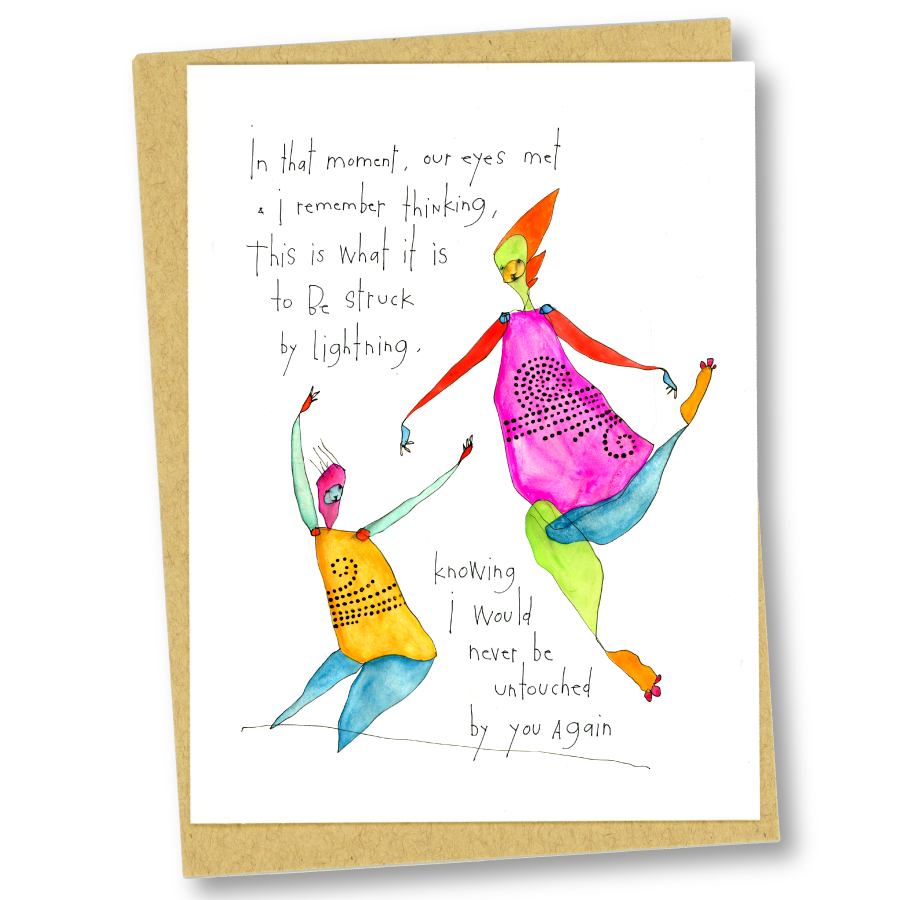 In that moment, our eyes met
& i remember thinking,
This is what it is
to Be struck
by lightning.
knowing
i would
never be
untouched
by you Again